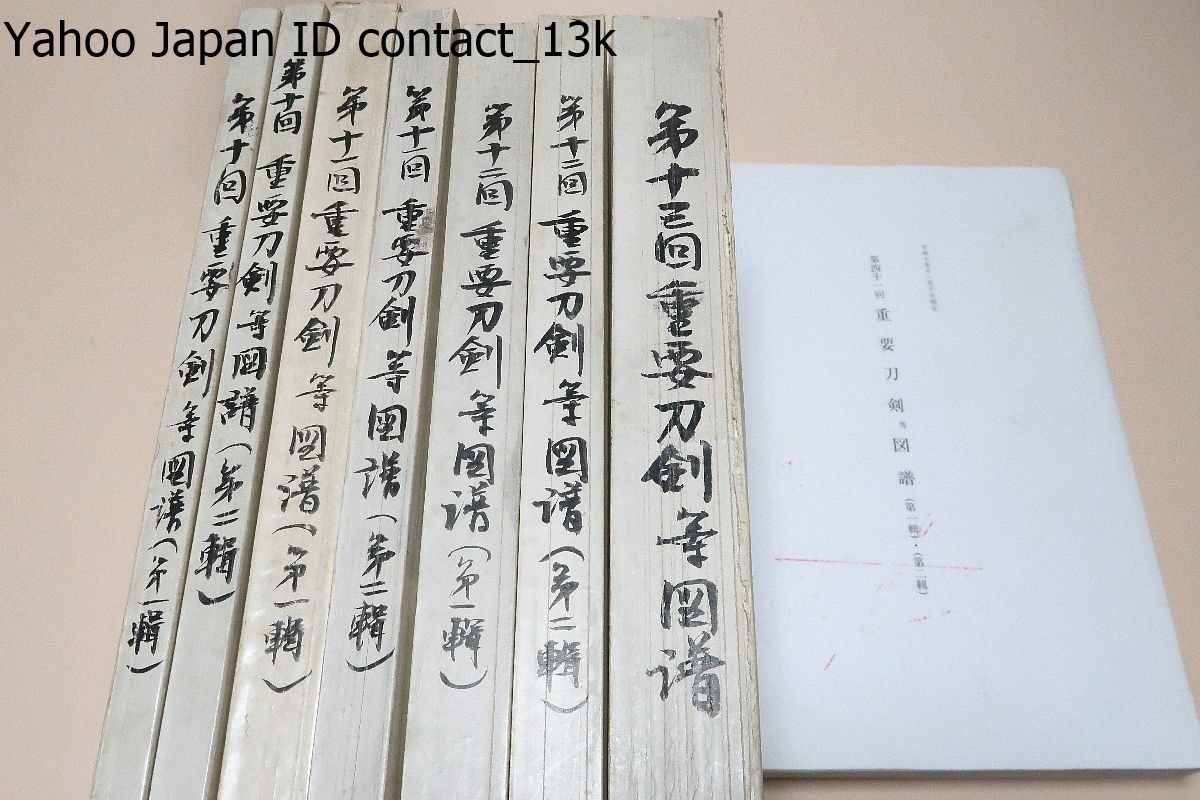 Yahoo Japan ID contact_13k
第十回 重要刀剣等図譜(第一輯)
第十回 重要刀剣等図譜(第二輯)
第十一回 重要刀剣等図譜(第一輯)
第十一回 重要刀剣等図譜(第二輯)
第十二回 重要刀剣等図譜(第一輯)
第十二回 重要刀剣等図譜(第二輯)
第十三回 重要刀剣等図譜
第四十一回 重要刀剣等図譜(第一輯)・(第二輯)